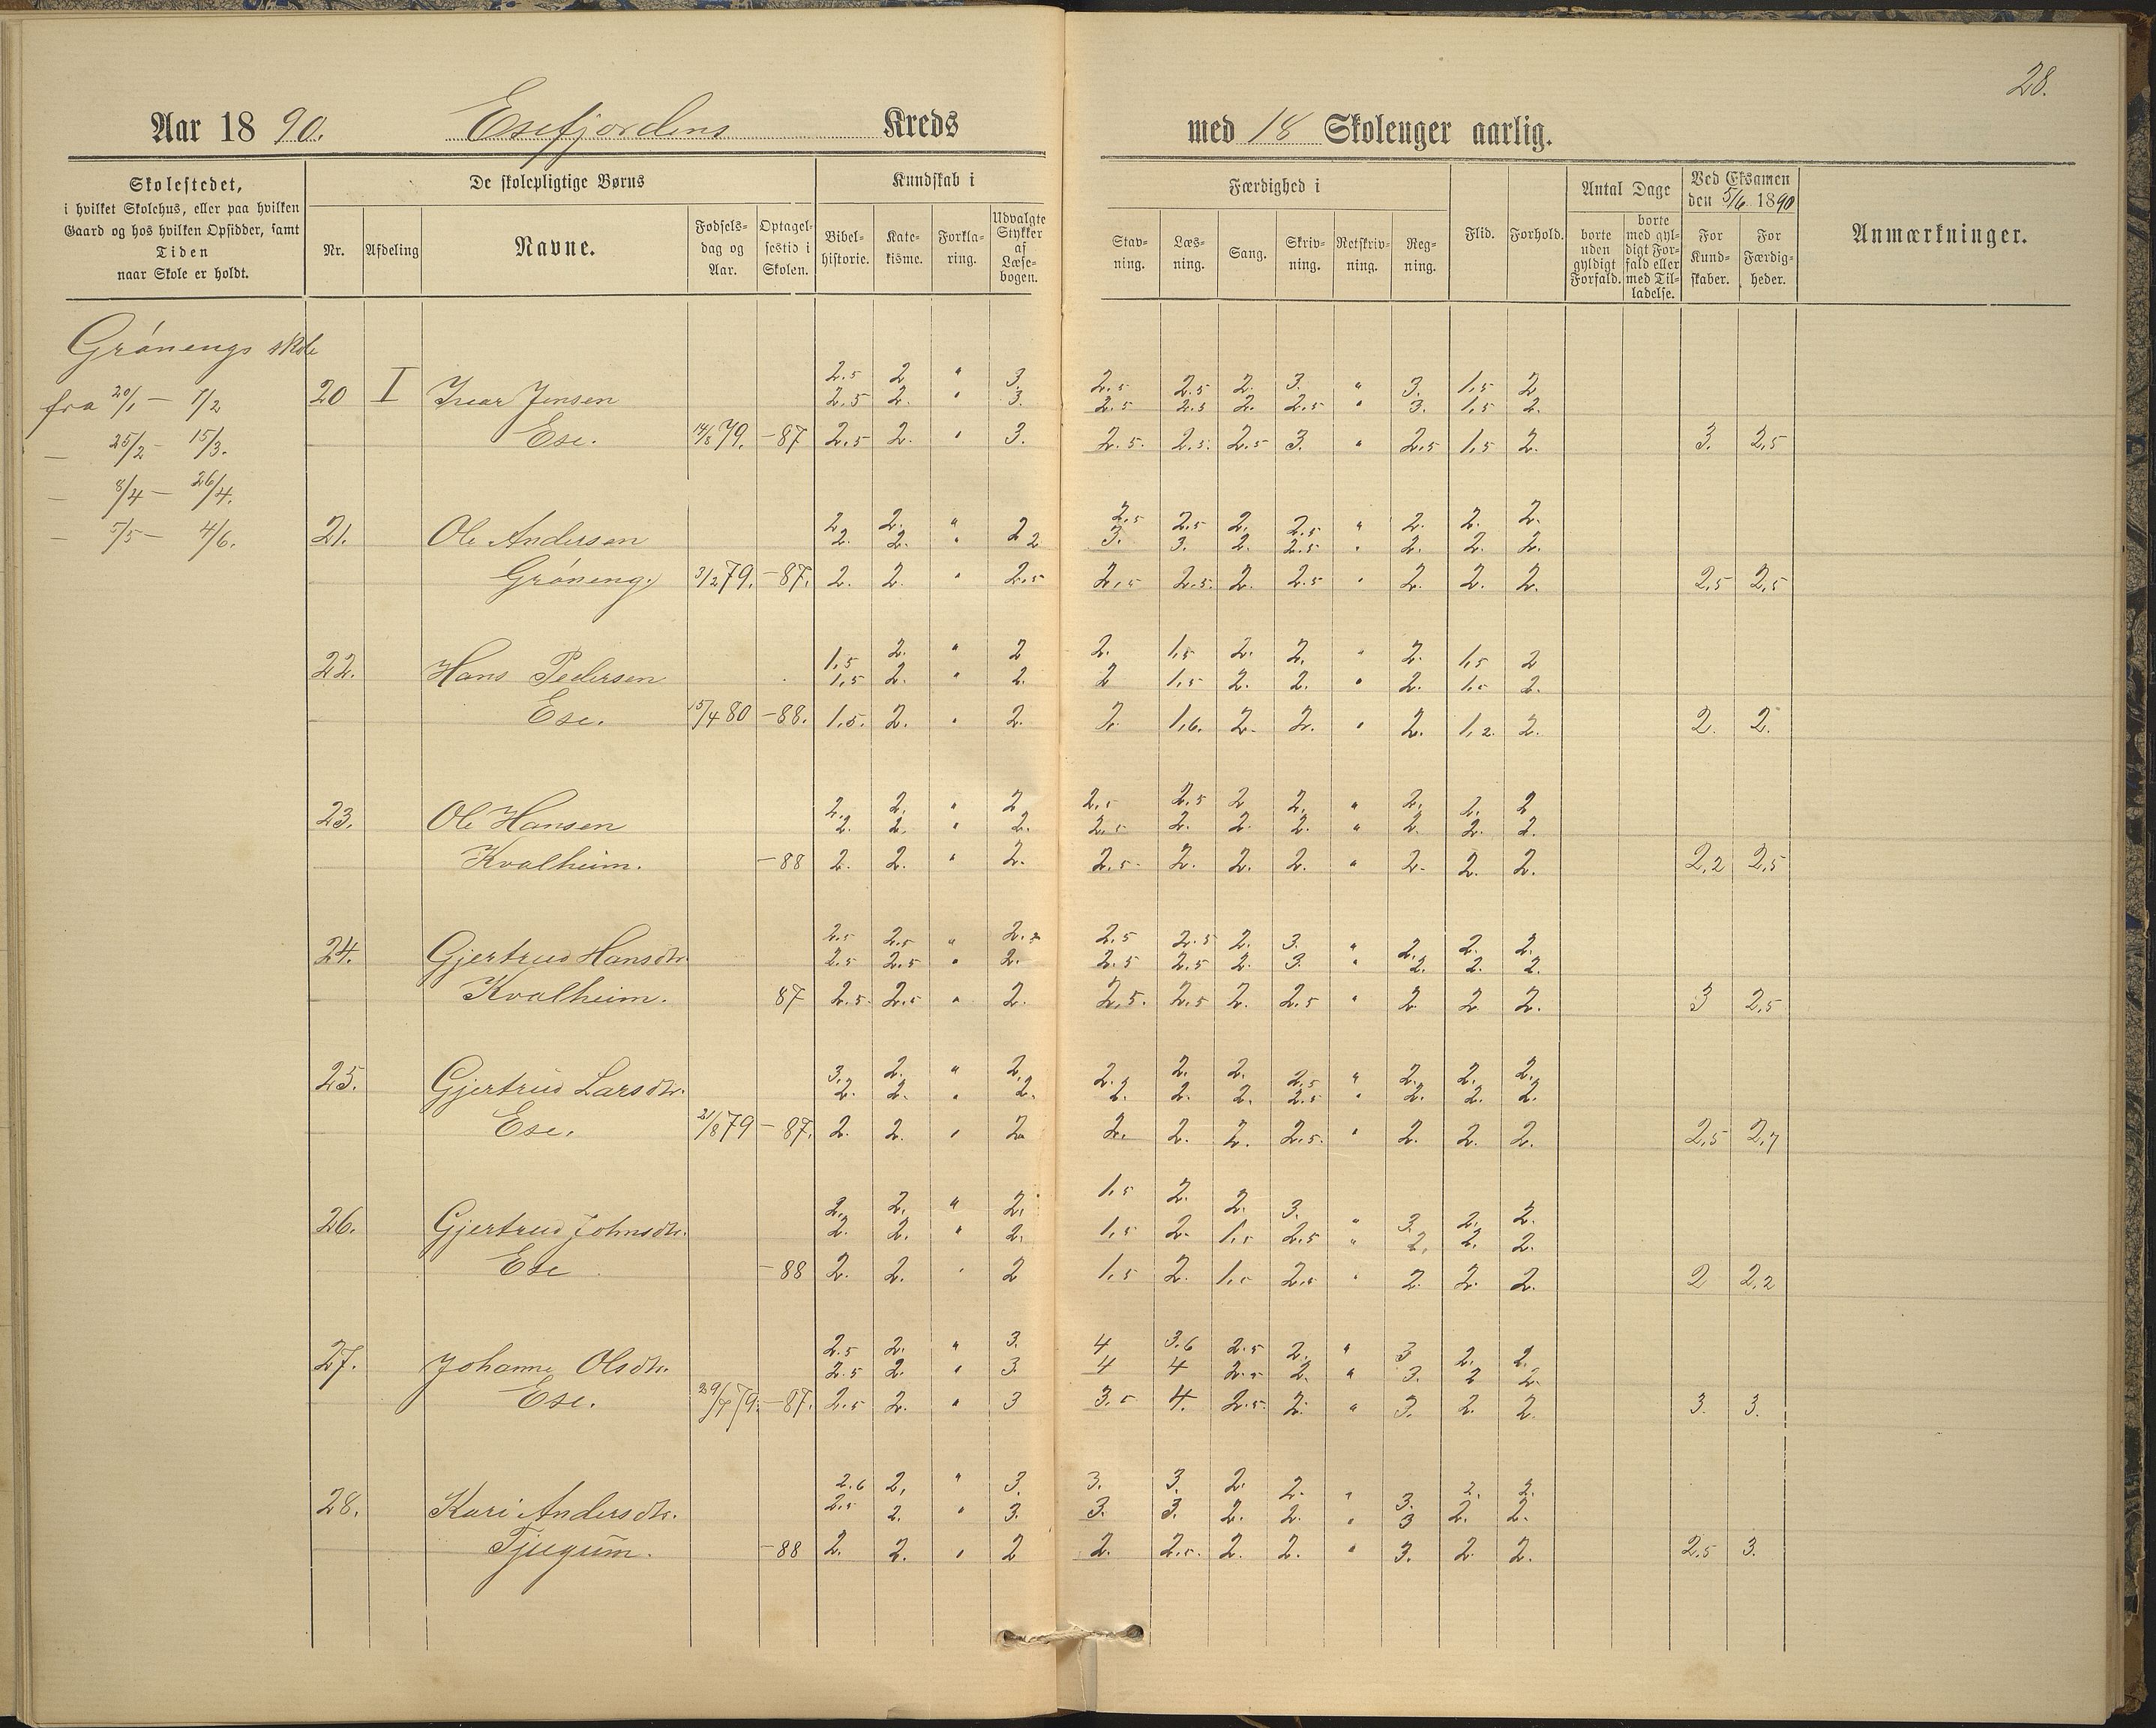 28.
Aar 1890. Esefjordens Kreds med 18 Skoleuger aarlig.
Skolestedet,
i hvilket Skolehus, eller paa hvilken
Gaard og hos hvilken Opsidder, samt
Tiden
naar Skole er holdt.
De skolepligtige Børns
Nr. Afdeling Navne. Fødsels-dag og Aar. Optagel-sestid i Skolen.
Kundskab i
Bibel-historie. Kate-kisme. Forkla-ring. Udvalgte Stykker af Læse-bogen.
Færdighed i
Stav-ning. Læs-ning. Sang. Skriv-ning. Retskriv-ning. Reg-ning.
Flid. Forhold.
Antal Dage
borte uden gyldigt Forfald. borte med gyl-digt For-fald eller med Til-ladelse.
Ved Eksamen
den 5/6 1890
For Kund-skaber. For Færdig-heder.
Anmærkninger.
Grónengs skole
fra 20/1 — 7/2
— 25/2 — 15/3.
— 8/4 — 26/4.
— 5/5 — 4/6.
20 I Ivar Jensen 2.5 2 " 3. 2.5 2.5 2. 3. " 3. 1,5 2
2.5 2. " 3. 2.5 2.5 2. 2.5 " 3. 1,5 2.
Ese. 14/8 79. -87 2,5 2. " 3. 2.5. 2.5. 2.5 3. " 2,5 1,5 2. 3. 2,5
21. Ole Andersen 2. 2. " 2 2,5 2.5 2. 2.5 " 2. 2. 2.
2. 2. " 2 3. 3. 2. 2.5 " 2. 2. 2.
Gróneng. 3/2 79. -87. 2. 2. " 2.5 2,5 2.5. 2. 2.5 " 2. 2. 2. 2,5 2,5
22. Hans Pedersen 1,5 2. " 2 2. 1,5 2. 2. " 2. 1,5 2
1,5 2. " 2. 2 1,5 2. 2. " 2. 1,5 2.
Ese. 15/4 80 -88. 1,5. 2. " 2. 2. 1,6. 2. 2. " 2. 1,2. 2. 2. 2.
23. Ole Hansen 2. 2. " 2 2,5 2,5 2 2. " 2. 2. 2
2. 2. " 2. 2,5 2. 2. 2. " 2. 2. 2.
Kvalheim. -88 2. 2. " 2. 2,5. 2. 2. 2. " 2. 2. 2. 2,2 2,5
24. Gjertrud Hansdtr. 2.5 2.5 " 2.2 2,5 2.5 2. 3. " 2. 2. 2.
2.5 2.5 " 2. 2.5 2.5 2. 3. " 2. 2. 2.
Kvalheim. 87 2.5. 2.5 " 2. 2,5. 2.5 2. 2.5 " 2. 2 2. 3 2,5
25. Gjertrud Larsdtr. 3. 2. " 2. 2. 2. 2. 2.5 " 2. 2. 2.
2. 2. " 2. 2. 2. 2. 2.5 " 2. 2. 2.
Ese. 21/8 79 -87. 2. 2. " 2. 2. 2. 2. 2.5. " 2. 2. 2. 2,5 2,7
26. Gjertrud Johnsdtr. 2. 2. " 2. 1,5 2. 2. 3. " 3. 2. 2.
2. 2. " 2. 1,5 2. 1,5 2.5 " 2. 2. 2.
Ese -88 2. 2. " 2 1,5 2. 1,5 2.5 " 2. 2. 2. 2 2,2
27. Johanne Olsdtr. 2.5 2. " 3. 4 3.6 2.5 2. " 3 2. 2.
2.5 2. " 3. 4 4 2.5 2. " 3. 2 2.
Ese. 29/7 79. -87. 2.5 2. " 3 3.5 4. 2.5. 2. " 3. 2. 2. 3. 3.
28. Kari Andersdtr. 2.6 2, " 3. 3. 3. 2. 2. " 3. 2. 2.
2.5 2. " 3. 3. 3. 2. 2. " 3 2. 2.
Tjugum. -88 2. 2. " 2 2. 2.5. 2. 2. " 3. 2. 2. 2.5 3.